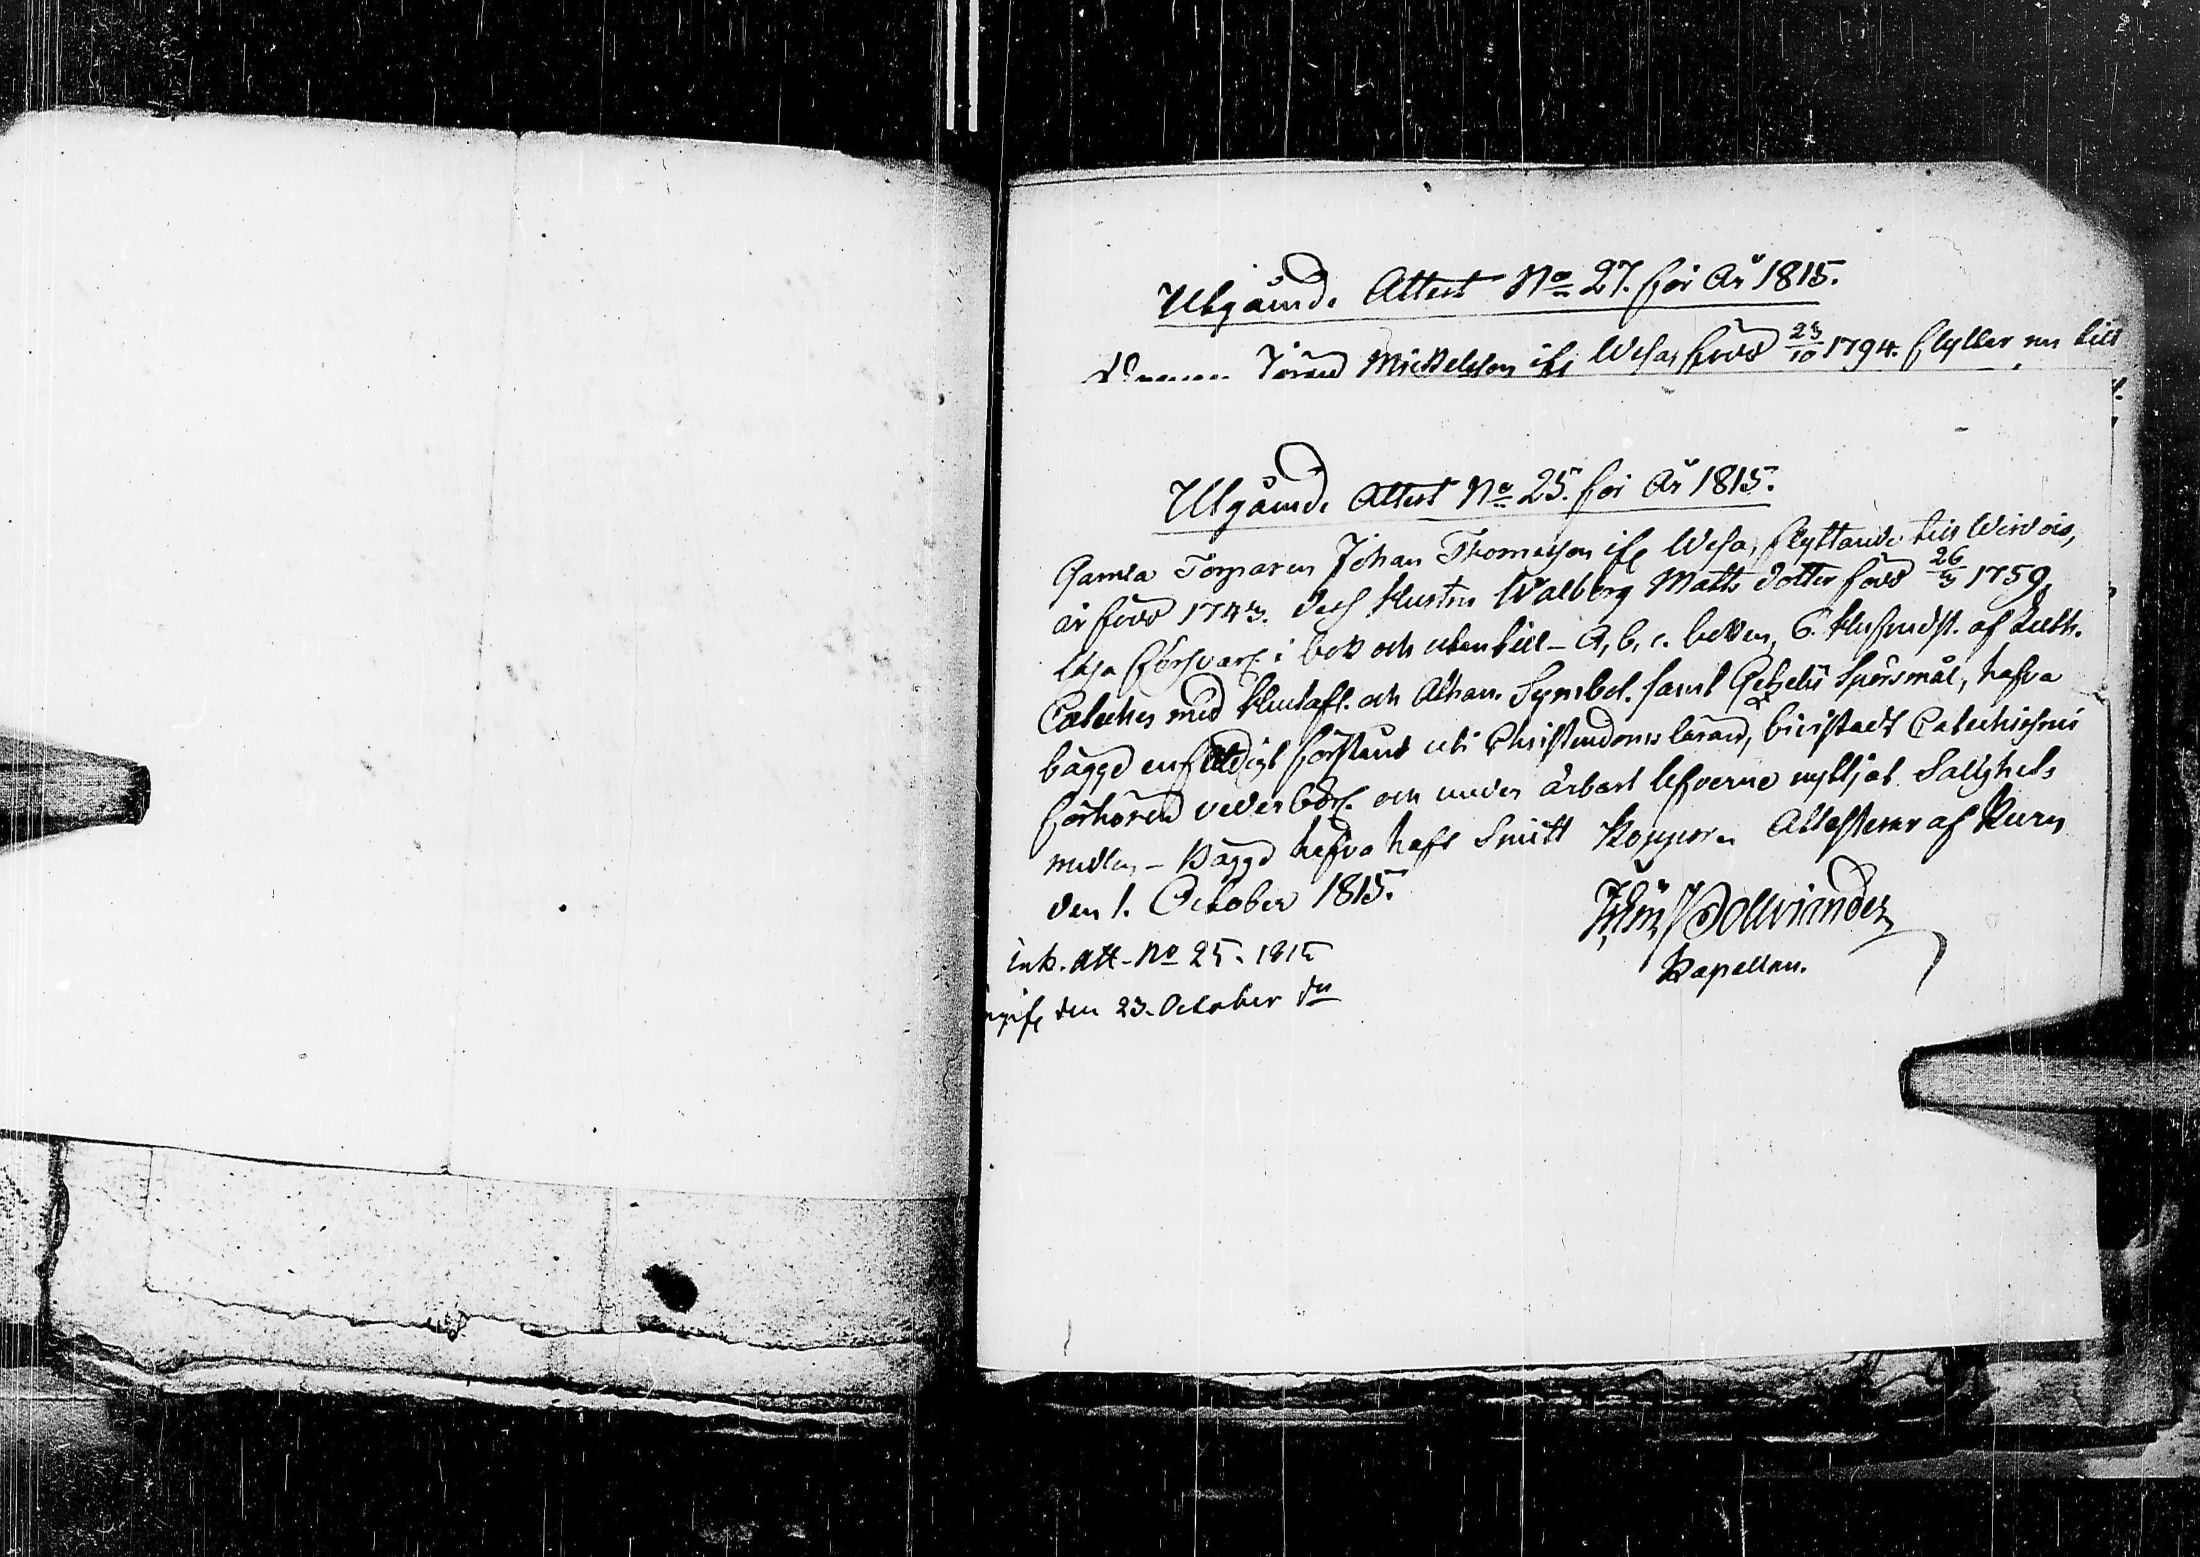 Utgående Attest No 27. för År 1815.
Jöran Mickelsson ifr. Wesa, född 23/10 1794. flyttar nu till
Utgående Attest No 25. för År 1815.
Gamla Torparen Johan Thomasson ifr. Wesa, flyttande till Wirvois,
är född 1743. dess Hustru Walborg Matts dotter född 26/3 1759,
läsa försvarl. i bok och utantill – A, b, c. boken, 6. Hufvudst. af Luth.
Cateches med Hustafl. och Athan. Symbol. samt Gezelii Spörsmål, hafva
bägge enfaldigt förstånd uti Christendoms läran, bivistadt Catechismi
förhören vederbörl. och under ärbart lefverne nyttjat Salighets
medlen – Bägge hafva haft Smitt Koppor. Attesterar af Kumo
den 1. October 1815.
Kapellan.
Ink. Att. No 25. 1815
den 23. October